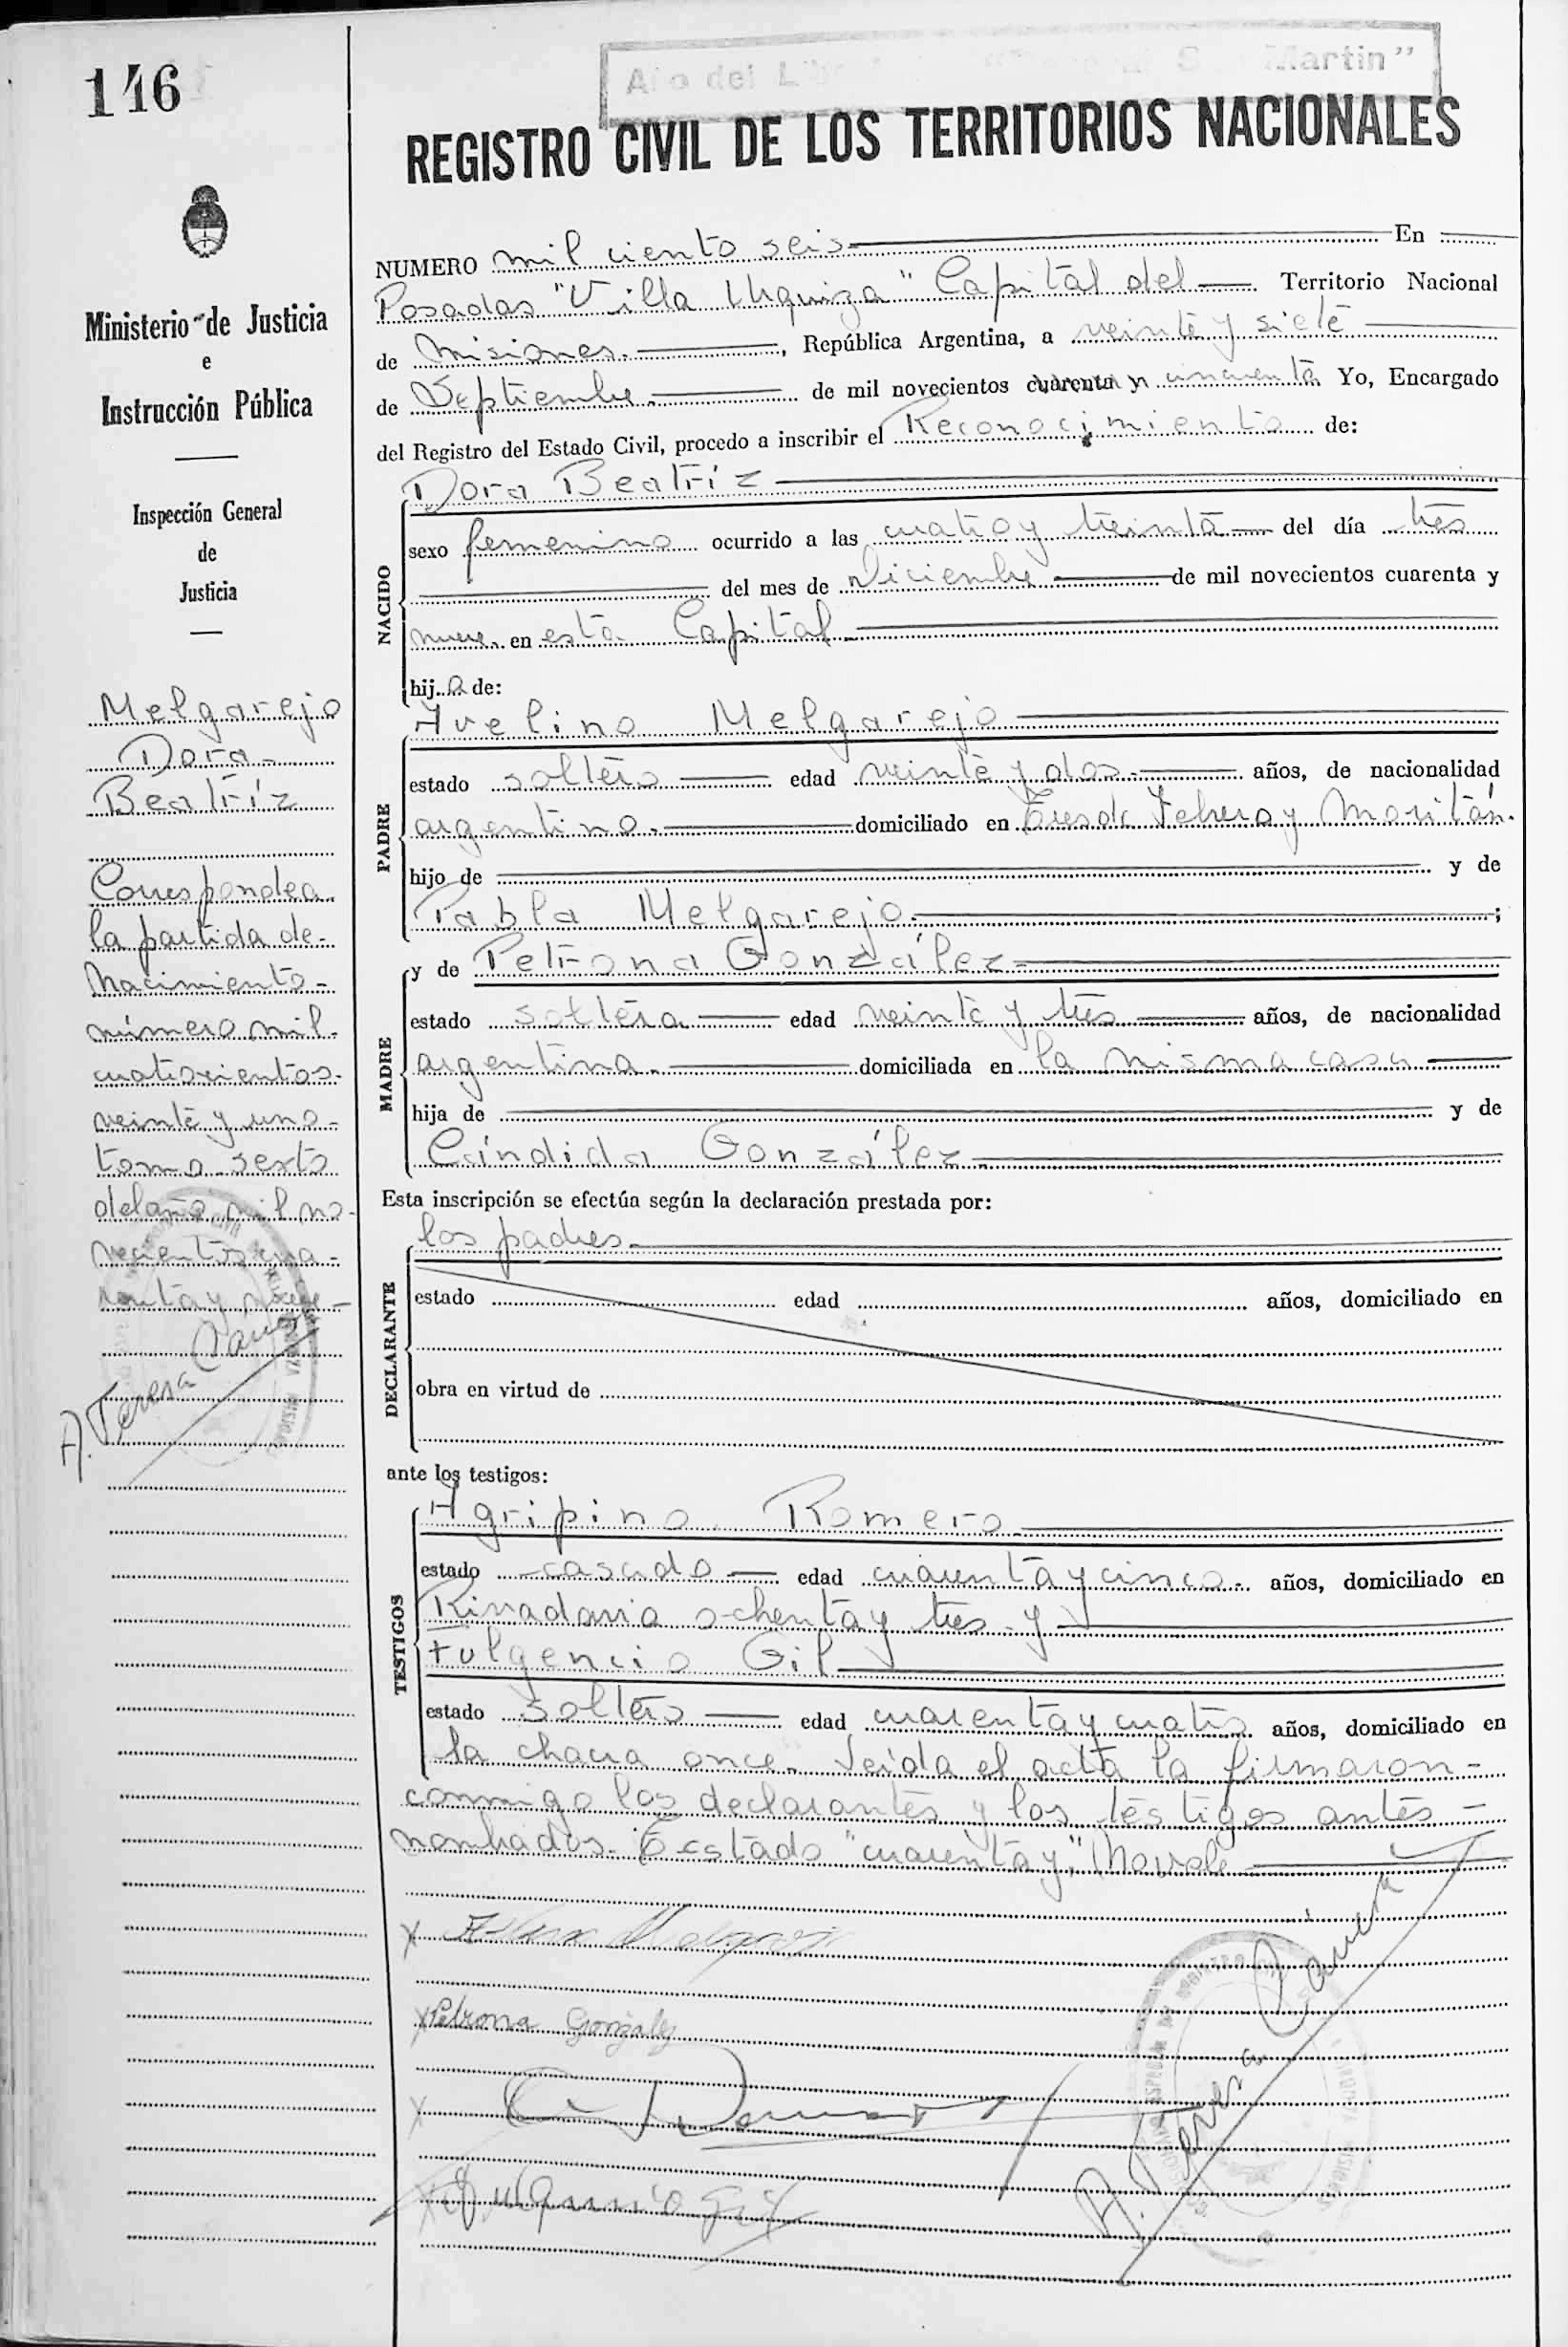 146
Año del Li San Martin"
REGISTRO CIVIL DE LOS TERRITORIOS NACIONALES
Ministerio de Justicia
e
Instrucción Pública
Inspección General
de
Justicia
Melgarejo
Dora
Beatríz
Corresponde a
la partida de-
Nacimiento-
número mil
cuatrocientos
veinte y uno-
tomo sexto
del año mil no-
vecientos cua-
renta y nueve-
A. Teresa
NUMERO mil ciento seis En
Posadas "Villa Urquiza" Capital del Territorio Nacional
de Misiones. , República Argentina, a veinte y siete
de Septiembre de mil novecientos cuarenta y cincuenta Yo, Encargado
del Registro del Estado Civil, procedo a inscribir el Reconocimiento de:
NACIDO
Dora Beatríz
sexo femenino ocurrido a las cuatro y treinta del día tres
del mes de Diciembre de mil novecientos cuarenta y
nueve en esta Capital.
hija de:
PADRE
Avelino Melgarejo
estado soltero edad veinte y dos años, de nacionalidad
argentino. domiciliado en Tres de Febrero y Moritán.
hijo de y de
Pabla Melgarejo. ;
MADRE
y de Petrona González
estado soltera edad veinte y tres años, de nacionalidad
argentina. domiciliada en la misma casa
hija de y de
Cándida González
Esta inscripción se efectúa según la declaración prestada por:
DECLARANTE
los padres.
estado edad años, domiciliado en
obra en virtud de
ante los testigos:
TESTIGOS
Agripino Romero
estado casado edad cuarenta y cinco años, domiciliado en
Rivadavia ochenta y tres y
Fulgencio Gil
estado soltero edad cuarenta y cuatro años, domiciliado en
la chacra once. Leída el acta la firmaron-
conmigo los declarantes y los testigos antes-
nombrados. Testado "cuarenta y", No vale
Petrona González
Fulgencio Gil
A. Teresa